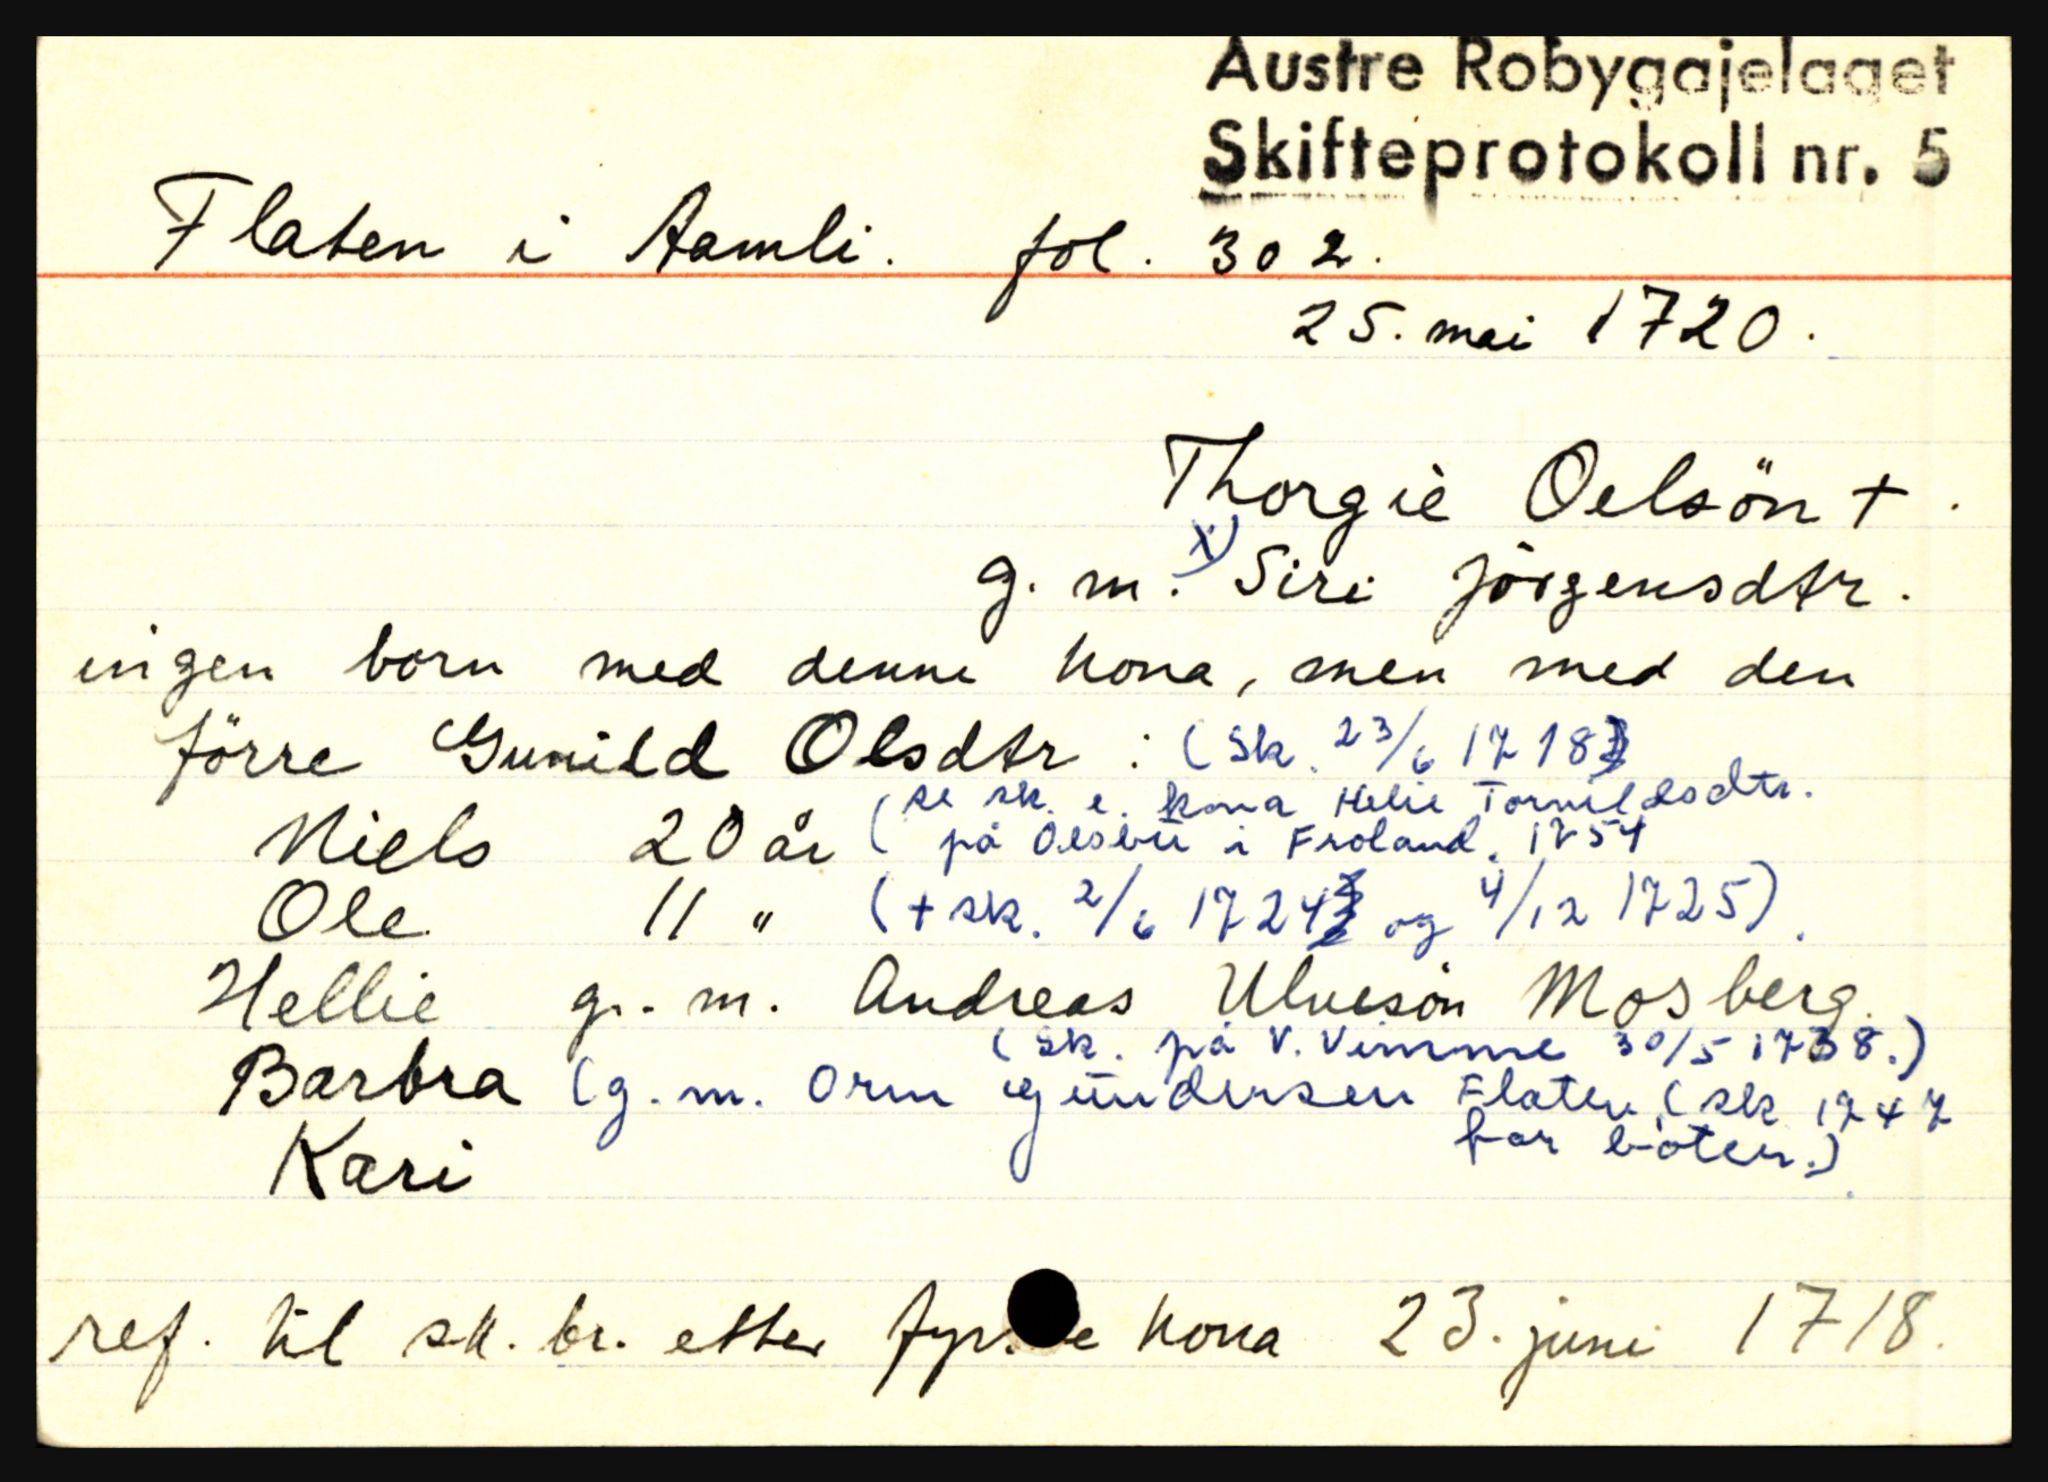 Austre Robygajelaget
Skifteprotokoll nr. 5
Flaten i Aamli. fol. 302.
25. mai 1720.
Thorgiè Oelsön +.
g. m. x) Siri Jörgensdtr.
ingen born med denne kona, men med den
förre Gunild Olsdtr : (Sk. 23/6 1718)
(se sk. e. kona Helie Tornildsdtr.
Niels 20 år på Oelsbu i Froland, 1754
Ole 11 " (+ sk. 2/6 1724 og 4/12 1725).
Hellie g. m. Andreas Ulvesön Mosberg.
(sk. på V. Vimme 30/5 1738.)
Barbra (g. m. Orm Gundersen Flaten (sk 1747
Kari
ref. til sk. br. etter kona 23. juni 1718.